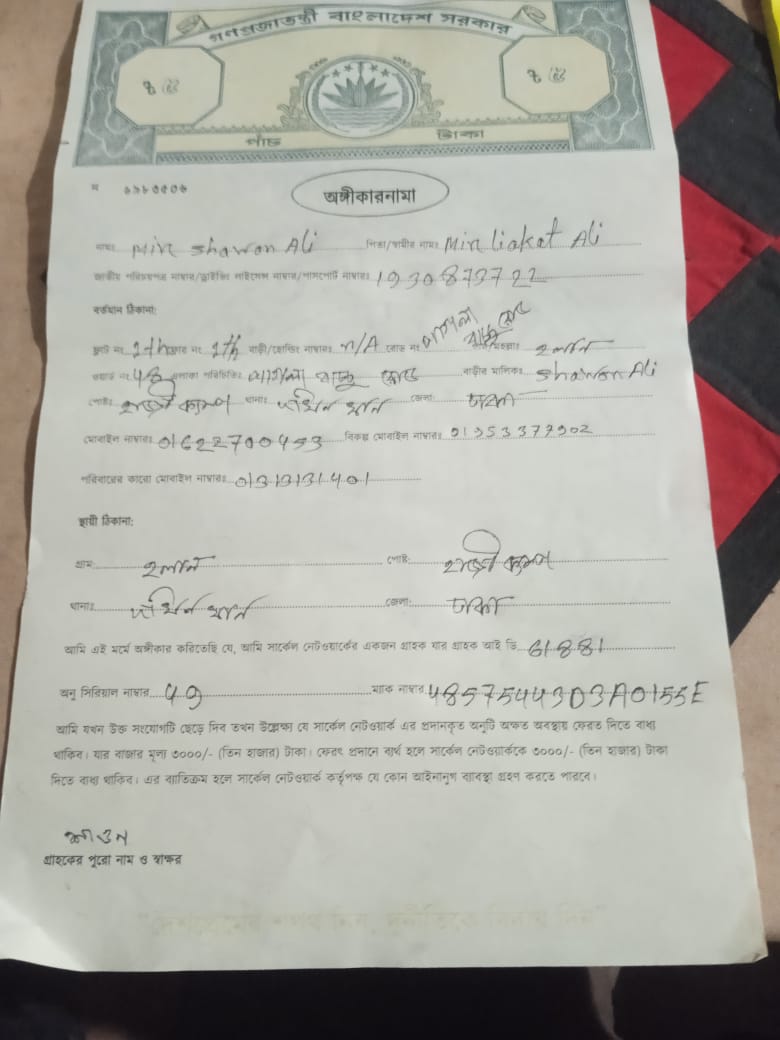 গণপ্রজাতন্ত্রী বাংলাদেশ সরকার
৳ ৫ ৳ ৫
পাঁচ টাকা
অঙ্গীকারনামা
নামঃ Mir Shawon Ali পিতা/স্বামীর নামঃ Mir liakat Ali
জাতীয় পরিচয়পত্র নাম্বার/ড্রাইভিং লাইসেন্স নাম্বার/পাসপোর্ট নাম্বারঃ
বর্তমান ঠিকানা:
ফ্ল্যাট নং ফ্লোর নং বাড়ী/হোল্ডিং নাম্বারঃ n/A রোড নং হলান
ওয়ার্ড নং 48 এলাকা পরিচিতিঃ বাড়ীর মালিকঃ Shawon Ali
পোষ্টঃ হাজী ক্যাম্প থানাঃ দক্ষিন খান জেলা ঢাকা
মোবাইল নাম্বারঃ 01622700453 বিকল্প মোবাইল নাম্বারঃ 01953377902
পরিবারের কারো মোবাইল নাম্বারঃ 01313131401
স্থায়ী ঠিকানা:
গ্রাম: হলান পোষ্ট: হাজী ক্যাম্প
থানাঃ দক্ষিন খান জেলা: ঢাকা
আমি এই মর্মে অঙ্গীকার করিতেছি যে, আমি সার্কেল নেটওয়ার্কের একজন গ্রাহক যার গ্রাহক আই ডি 61881
অনু সিরিয়াল নাম্বার 49 ম্যাক নাম্বার 4857544303A0155E
আমি যখন উক্ত সংযোগটি ছেড়ে দিব তখন উল্লেক্ষ্য যে সার্কেল নেটওয়ার্ক এর প্রদানকৃত অনুটি অক্ষত অবস্থায় ফেরত দিতে বাধ্য
থাকিব। যার বাজার মূল্য ৩০০০/- (তিন হাজার) টাকা। ফেরৎ প্রদানে ব্যর্থ হলে সার্কেল নেটওয়ার্ককে ৩০০০/- (তিন হাজার) টাকা
দিতে বাধ্য থাকিব। এর ব্যতিক্রম হলে সার্কেল নেটওয়ার্ক কর্তৃপক্ষ যে কোন আইনানুগ ব্যবস্থা গ্রহণ করতে পারবে।
শাওন
গ্রাহকের পুরো নাম ও স্বাক্ষর
"দেশপ্রেমের শপথ নিন, দুর্নীতিকে বিদায় দিন"